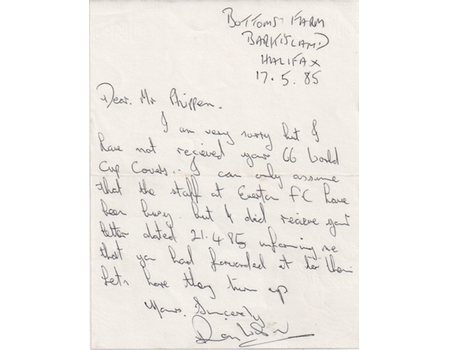 BOTTOMS FARM
BARKISLAND
HALIFAX
17.5.85
Dear Mr Phippen.
I am very sorry but I
have not recieved your 66 World
Cup Covers. I can only assume
that the staff at Everton FC have
been busy. but I did recieve your
letter dated 21.4.85 informing me
that you had forwarded it to them
Let's hope they turn up
Yours Sincerely